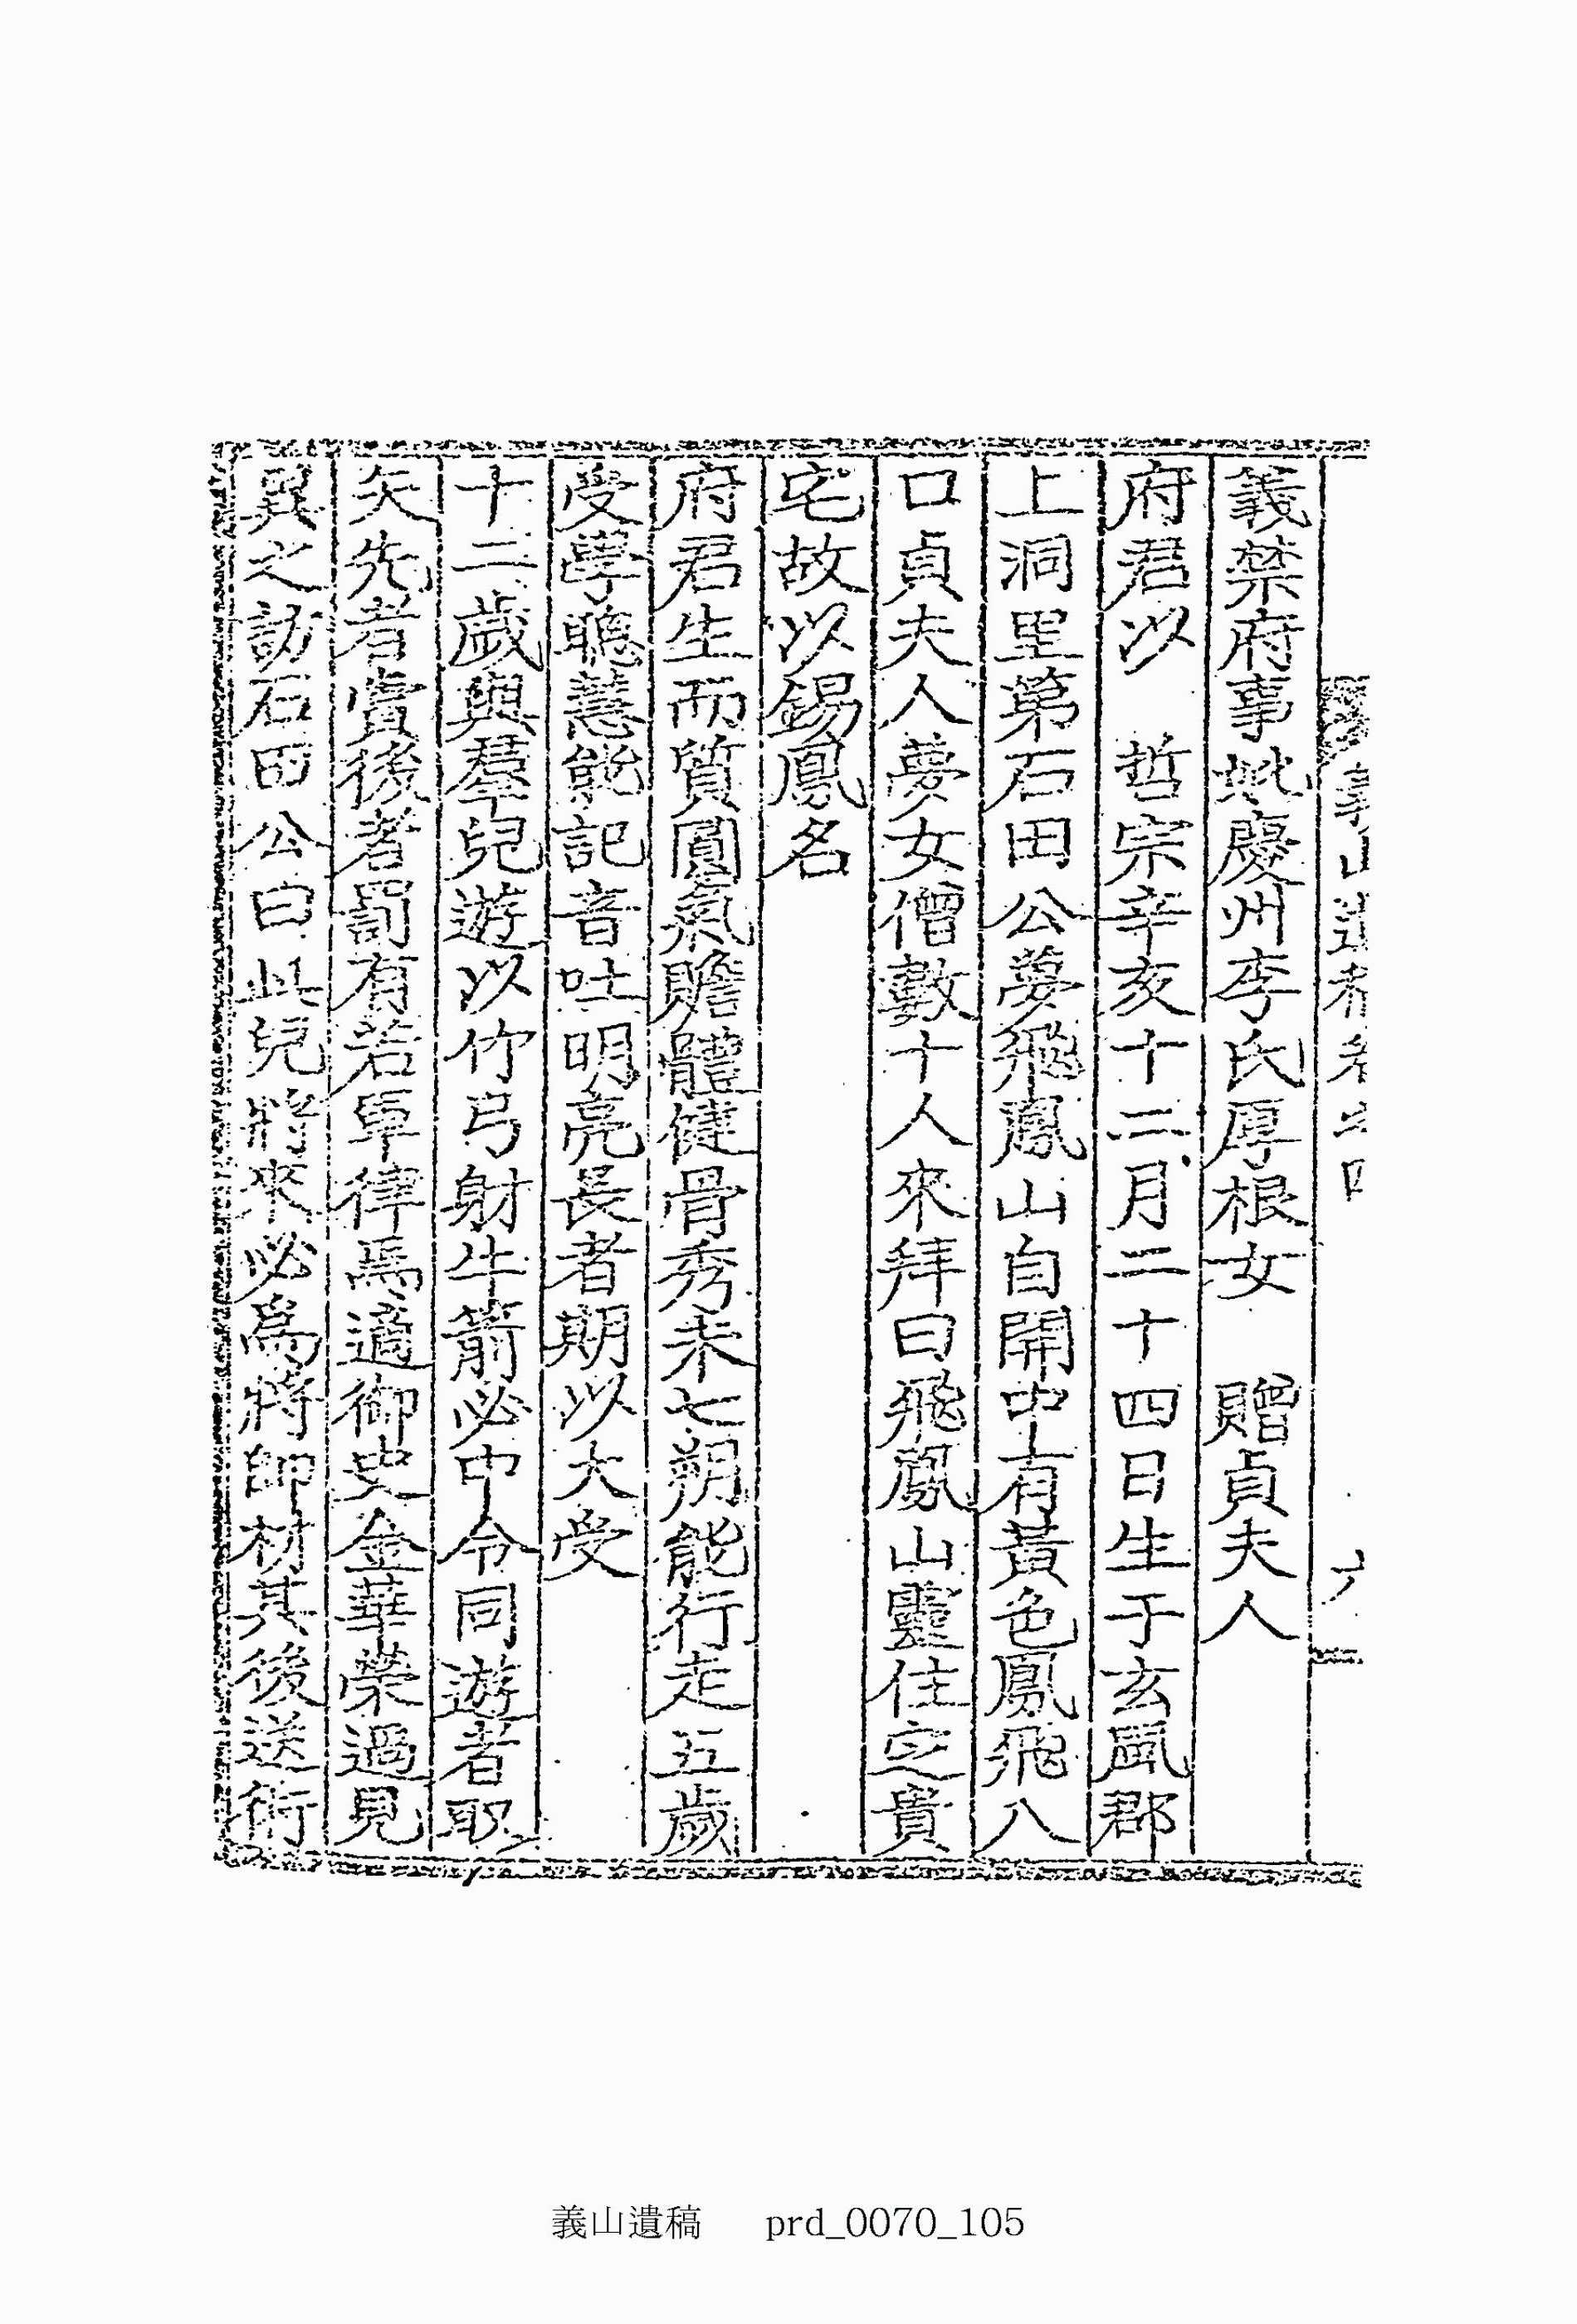 義山遺稿卷之四
義禁府事妣慶州李氏厚根女　贈貞夫人
府君以　哲宗辛亥十二月二十四日生于玄風郡
上洞里第石田公夢飛鳳山自開中有黃色鳳飛八
口貞夫人夢女僧數十人來拜曰飛鳳山靈住之貴
宅故以錫鳳名
府君生而質圓氣贍體健骨秀未七朔能行走五歲
受學聰慧能記音吐明亮長者期以大受
十二歲與羣兒遊以竹弓射牛箭必中令同遊者取
矢先者賞後者罰有若軍律焉適御史金華榮過見
異之訪石田公曰此兒將來必爲將帥材其後送術
義山遺稿 prd_0070_105